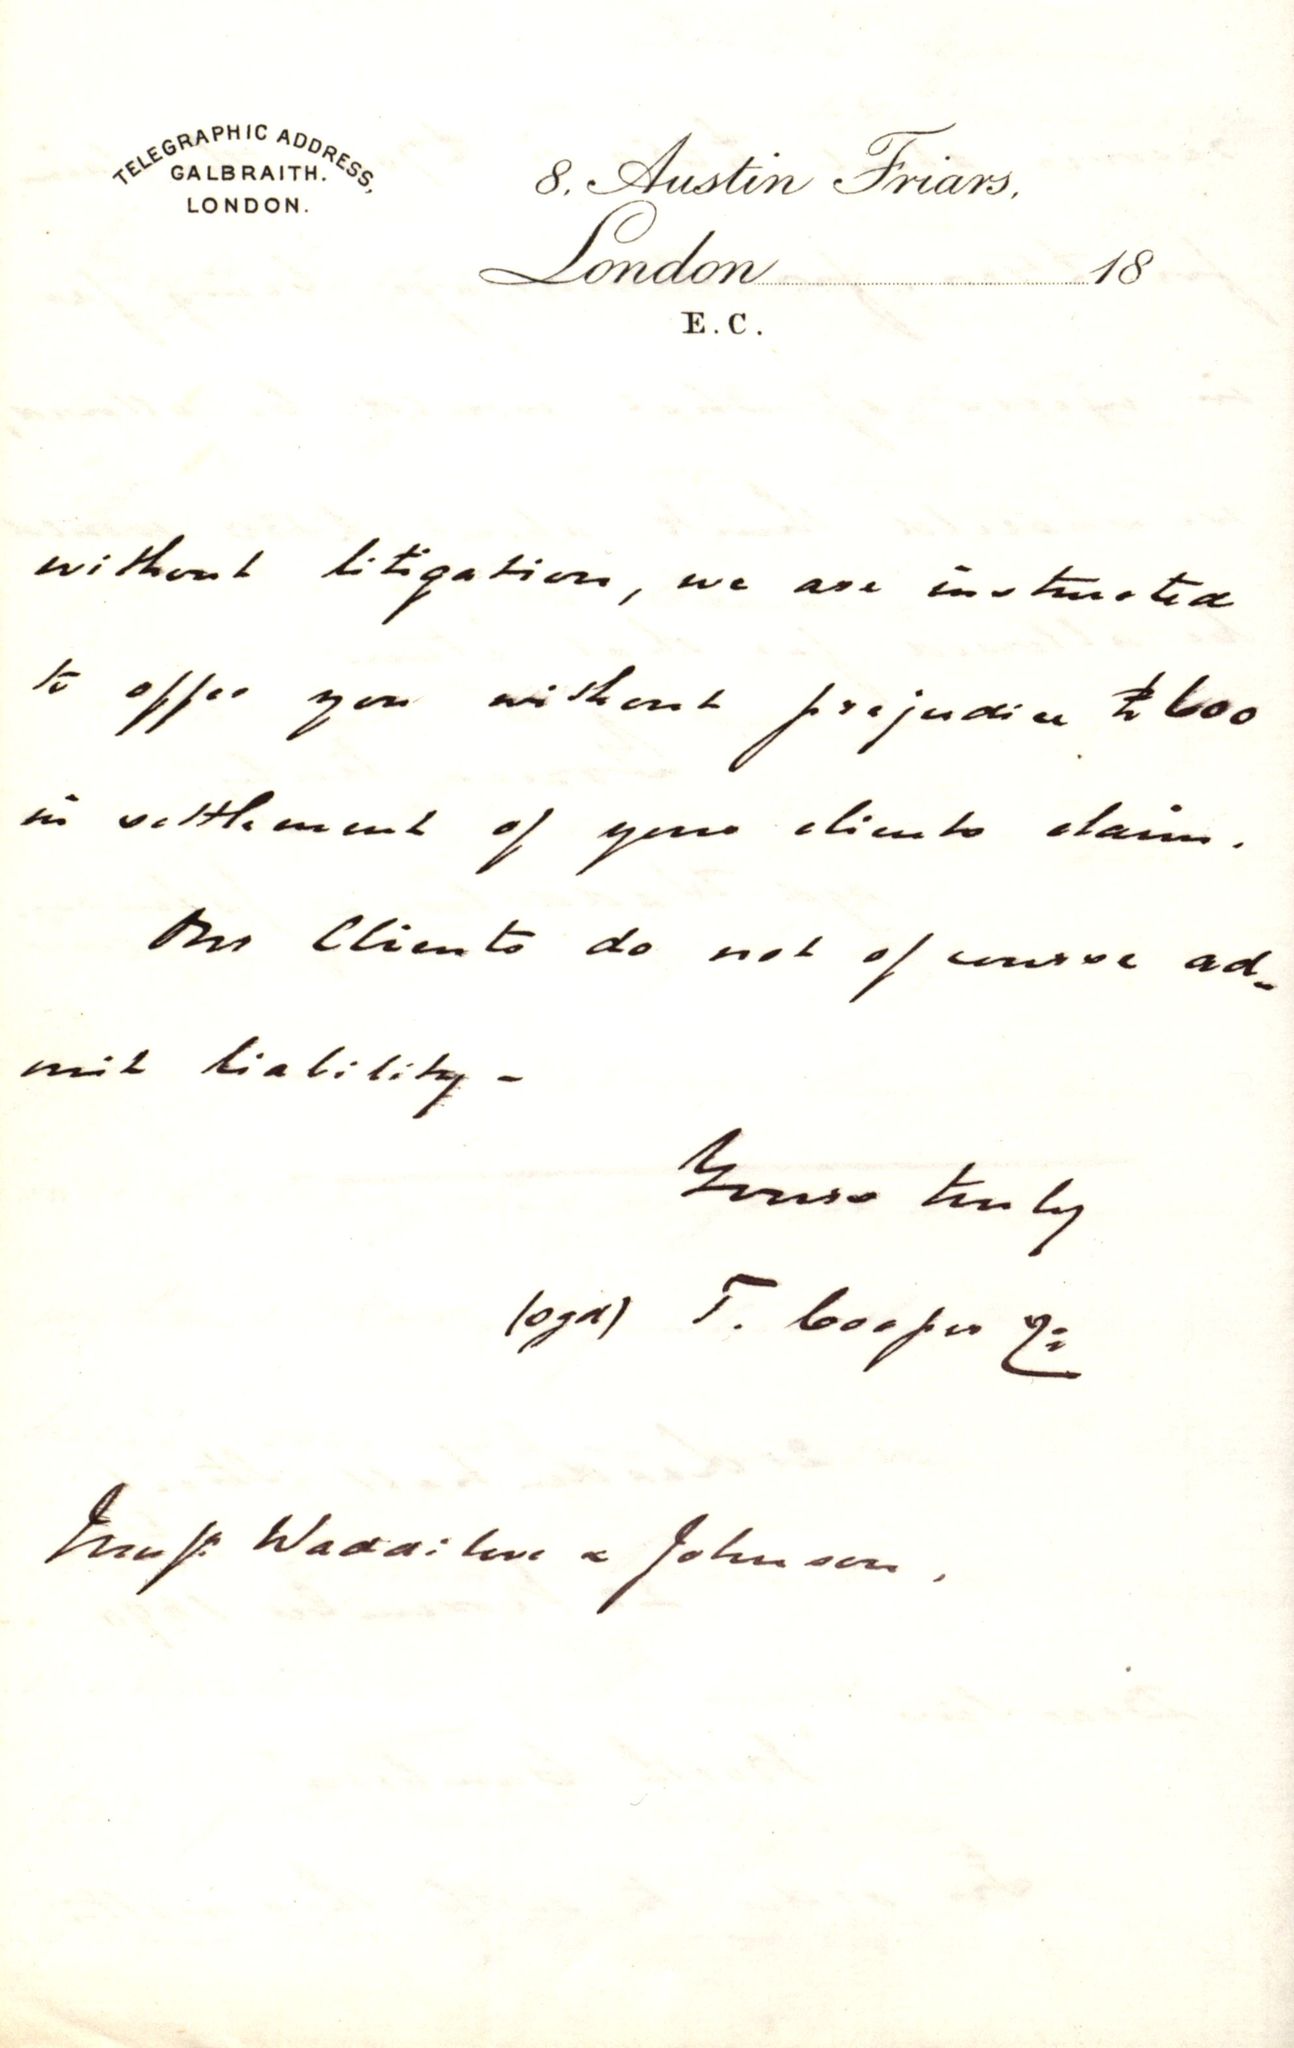 TELEGRAPHIC ADDRESS,
GALBRAITH.
LONDON.
8, Austin Friars,
London 18
E.C.
without litigation, we are instructed
to offer you without prejudice £600
in settlement of your clients claim.
Our Clients do not of course ad-
mit liability -
Yours truly
(sgd) T. Cooper & Co
Messrs Waddilove & Johnson.